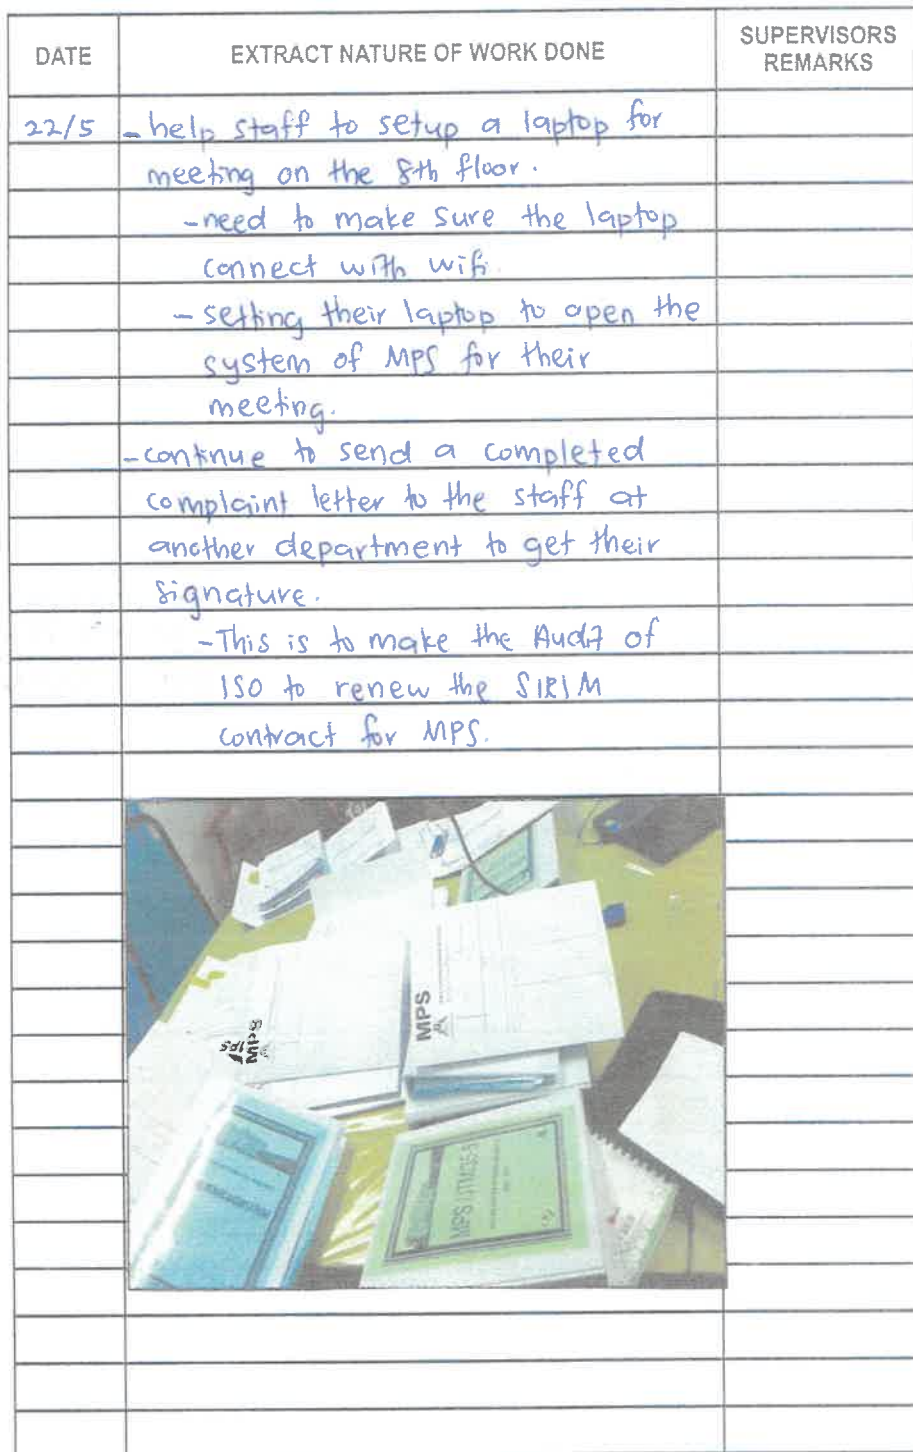 DATE
EXTRACT NATURE OF WORK DONE
SUPERVISORS
REMARKS
22/5
- help staff to setup a laptop for
meeting on the 8th floor.
- need to make sure the laptop
connect with wifi.
- setting their laptop to open the
system of MPS for their
meeting.
- continue to send a completed
complaint letter to the staff at
another department to get their
signature.
- This is to make the Audit of
ISO to renew the SIRIM
contract for MPS.
MPS
MPS